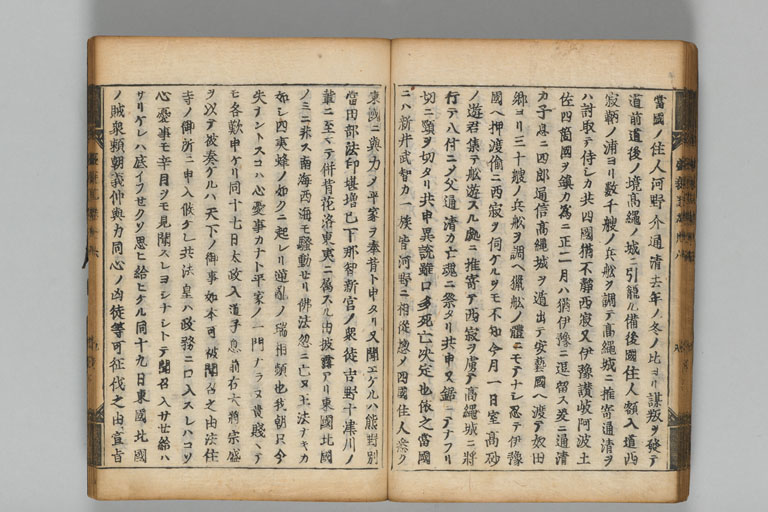 當國ノ住人河野介通清去年ノ冬ノ比ヨリ謀叛ヲ發テ
道前道後ノ境高繩ノ城ニ引籠ル備後國住人額入道西
寂鞆ノ浦ヨリ數千艘ノ兵船ヲ調テ高繩城ニ推寄通清ヲ
ハ討取テ侍シカ共四國猶不靜西寂又伊豫讃岐阿波土
佐四箇國ヲ鎮カ為ニ正二月ハ猶伊豫ニ逗留ス爰ニ通清
カ子息ニ四郎通信高繩城ヲ遁出テ安藝國ヘ渡テ奴田
郷ヨリ三十艘ノ兵船ヲ調ヘ獵船ノ體ニモテナシ忍テ伊豫
國ヘ押渡偷ニ西寂ヲ伺ケルヲモ不知今月一日室高砂
ノ遊君集テ船遊スル處ニ推寄テ西寂ヲ虜テ高繩城ニ將
行テ八付ニシテ父通清カ亡魂ニ祭タリ共申又鋸ニテナフリ
切ニ頸ヲ切タリ共申異説雖口多死亡決定也依之當國
ニハ新井武智カ一族皆河野ニ相從惣ノ四國住人悉ク
東國ニ與力ノ平家ヲ奉背ト申タリ又聞エケルハ熊野別
當田部法印堪増已下那智新宮ノ衆徒吉野十津川ノ
輩ニ至マテ併背花洛東夷ニ屬スル由披露アリ東國北國
ノミニ非ス南海西海モ騷動セリ佛法忽ニ亡ヌ王法ナキカ
如シ四夷蜂ノ如クニ起レリ逆亂ノ瑞相頻也我朝只今
失ナントスコハ心憂事カナト平家ノ一門ナラヌ貴賤マテ
モ各歎申ケリ同十七日太政入道子息前右大將宗盛
ヲ以テ被奏ケルハ天下ノ御事如本可被聞召之由法住
寺ノ御所ニ申入候ケレ共法皇ハ政務ニ口入スレハコソ
心憂事モ辛目ヲモ見聞スレヨシナシトテ聞召入サセ給ハ
サリケレハ底イフセクソ思ヒ給ヒケル同十九日東國北國
ノ賊衆頼朝義仲與力同心ノ凶徒等可征伐之由宣旨